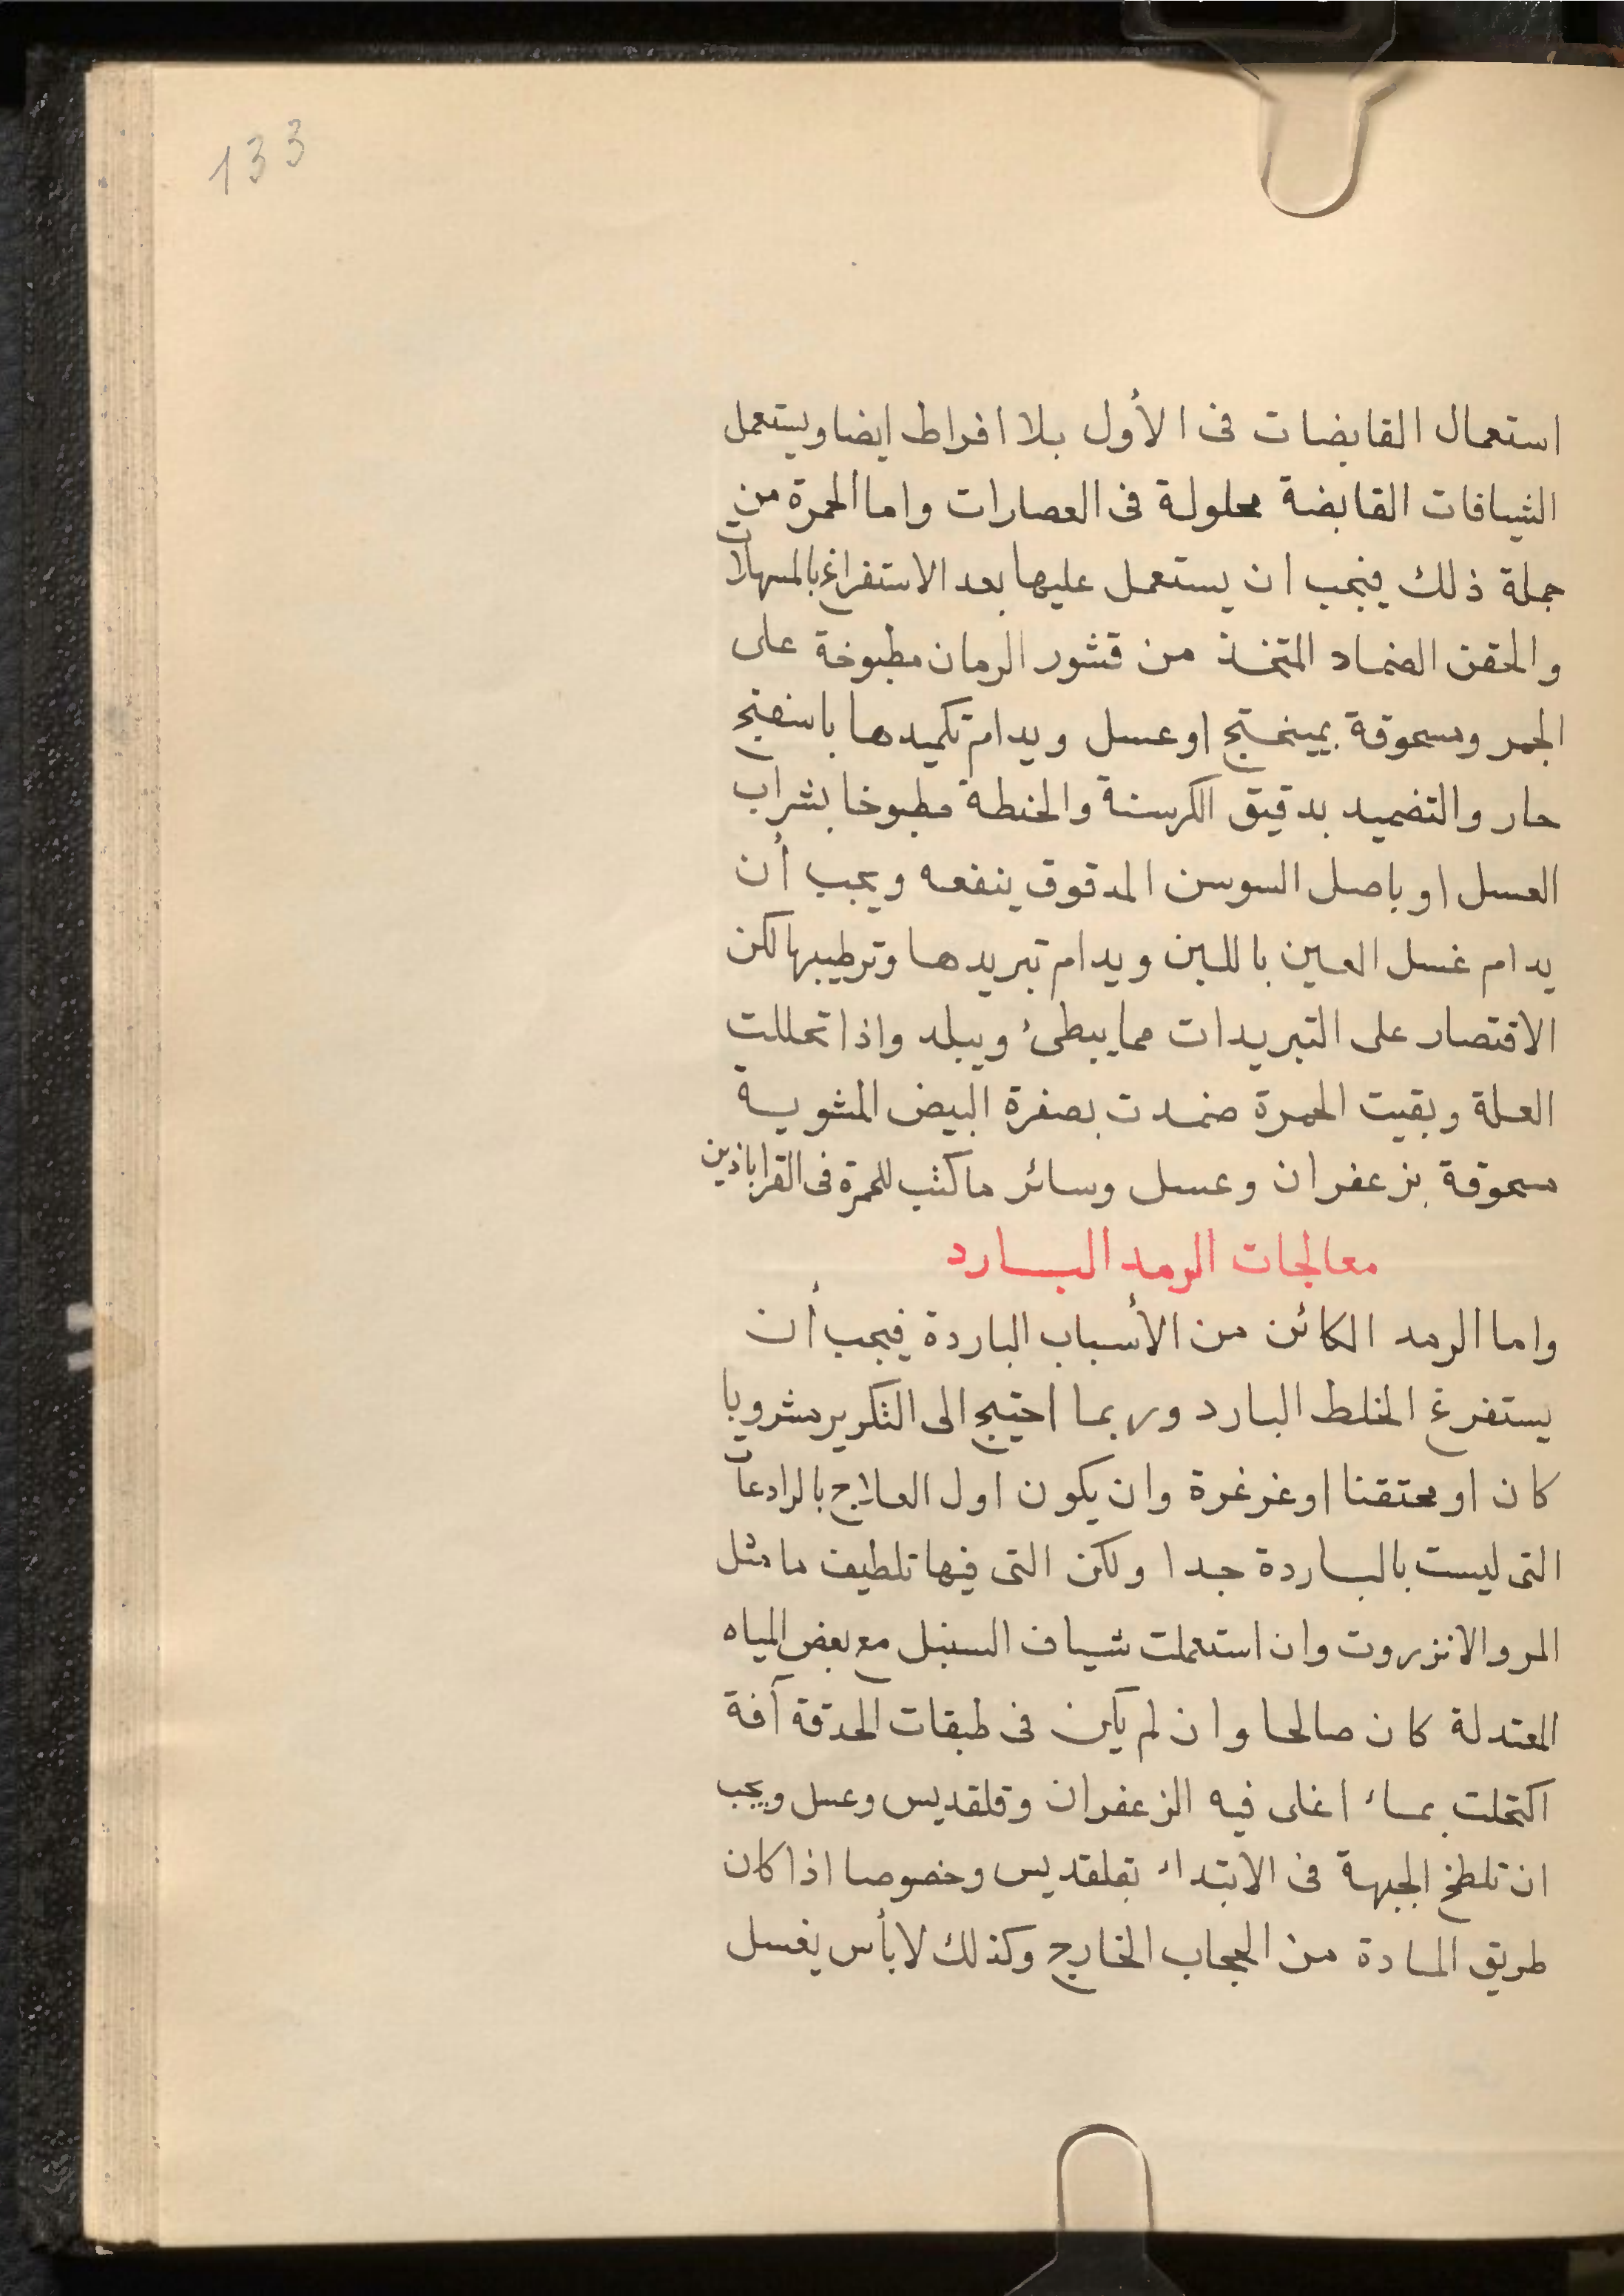 133
استعمال القابضات فى الأول بلا افراط ايضا ويستعمل
الشيافات القابضة محلولة فى العصارات واما الحمرة من
جملة ذلك فيجب ان يستعمل عليها بعد الاستفراغ بالمسهلات
والحقن الضماد المتخذ من قشور الرمان مطبوخة على
الجمر ومسحوقة بميبختج او عسل ويدام تكميدها باسفنج
حار والتضميد بدقيق الكرسنة والحنطة مطبوخا بشراب
العسل او باصل السوسن المدقوق ينفعه ويجب أن
يدام غسل العين باللبن ويدام تبريدها وترطيبها لكن
الاقتصار على التبريدات مما يبطئ ويبلد واذا تحللت
العلة وبقيت الحمرة ضمدت بصفرة البيض المشوية
مسحوقة بزعفران وعسل وسائر ما كتب للحمرة فى القراباذين
معالجات الرمد البارد
واما الرمد الكائن من الأسباب الباردة فيجب أن
يستفرغ الخلط البارد وربما احتيج الى التكرير مشروبا
كان او محتقنا او غرغرة وان يكون اول العلاج بالرادعات
التى ليست بالباردة جدا ولكن التى فيها تلطيف ما مثل
المر والانزروت وان استعملت شياف السنبل مع بعض المياه
المعتدلة كان صالحا وان لم يكن فى طبقات الحدقة آفة
اكتحلت بماء اغلى فيه الزعفران وقلقديس وعسل ويجب
ان تلطخ الجبهة فى الابتداء بقلقديس وخصوصا اذا كان
طريق المادة من الحجاب الخارج وكذلك لا بأس يغسل